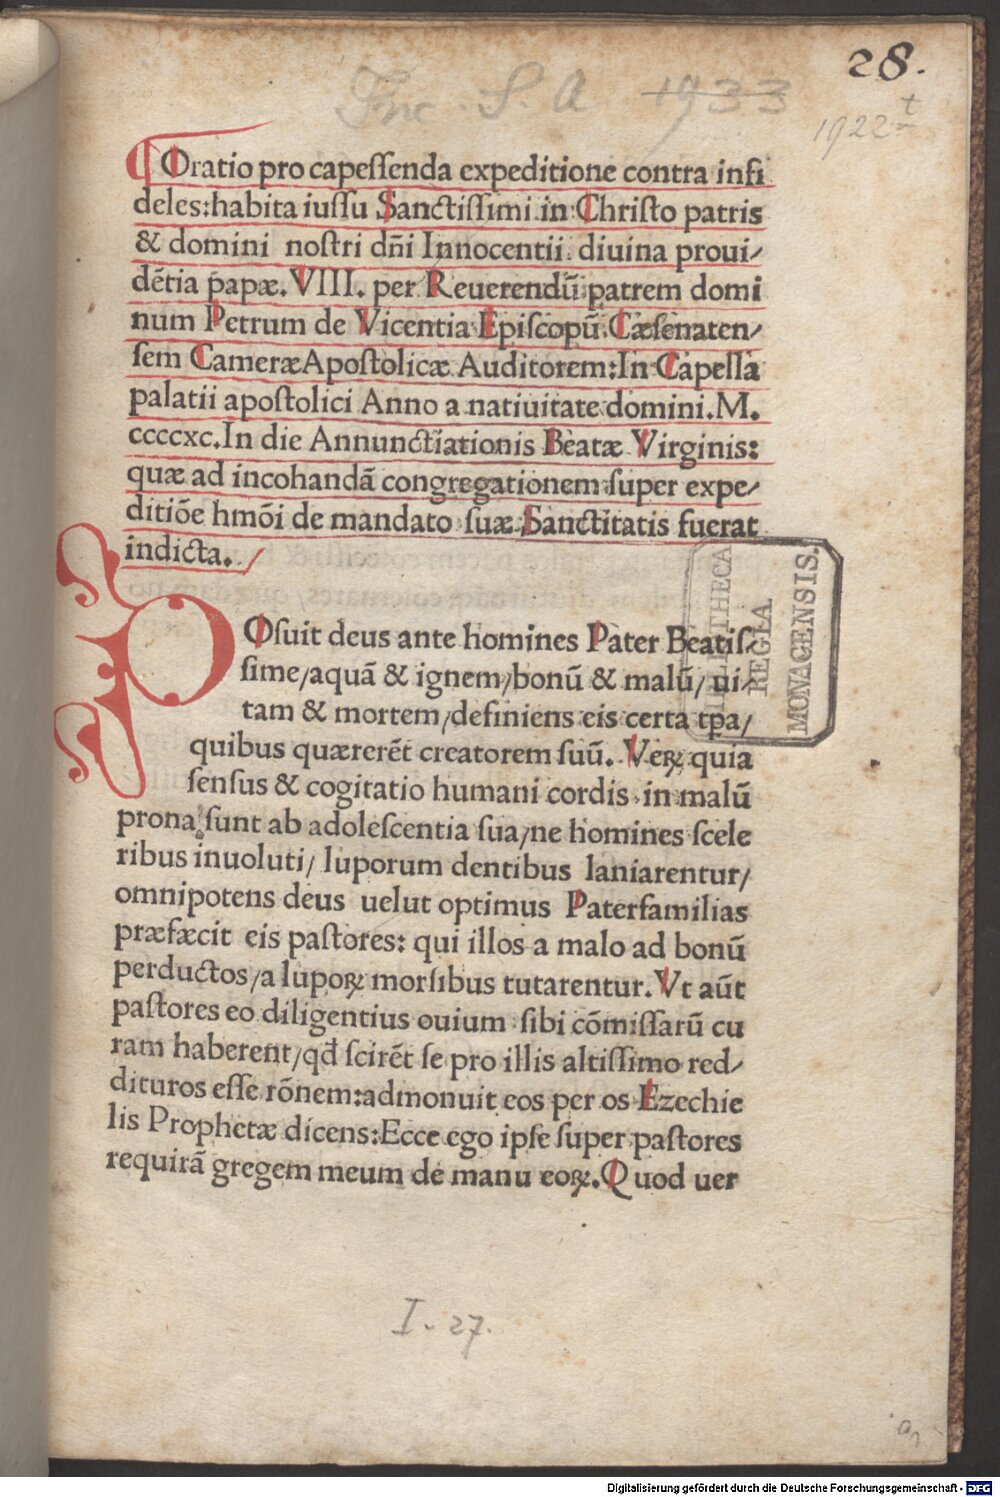 28.
Inc. S. A 1933
1922 t
Oratio pro capeſſenda expeditione contra infi
deles:habita iuſſu Sanctiſſimi in Chriſto patris
& domini noſtri dñi Innocentii diuina proui/
dẽtia papæ. VIII. per Reuerendũ patrem domi
num Petrum de Vicentia Epiſcopũ Cæſenaten/
ſem Cameræ Apoſtolicæ Auditorem:In Capella
palatii apoſtolici Anno a natiuitate domini.M.
ccccxc.In die Annunctiationis Beatæ Virginis:
quæ ad incohandã congregationem ſuper expe/
ditiõe hmõi de mandato ſuæ Sanctitatis fuerat
indicta.
POſuit deus ante homines Pater Beatiſ/
ſime/aquã & ignem/bonũ & malũ/ ui/
tam & mortem/definiens eis certa tp̃a/
quibus quærerẽt creatorem ſuũ. Veꝝ quia
ſenſus & cogitatio humani cordis in malũ
prona ſunt ab adoleſcentia ſua/ne homines ſcele
ribus inuoluti/ luporum dentibus laniarentur/
omnipotens deus uelut optimus Paterfamilias
præfæcit eis paſtores: qui illos a malo ad bonũ
perductos/a lupoꝝ morſibus tutarentur.Vt aũt
paſtores eo diligentius ouium ſibi cõmiſſarũ cu
ram haberent/qđ ſcirẽt ſe pro illis altiſſimo red/
dituros eſſe rõnem:admonuit eos per os Ezechie
lis Prophetæ dicens:Ecce ego ipſe ſuper paſtores
requirã gregem meum de manu eoꝝ.Quod uer
BIBLIOTHECA
REGIA
MONACENSIS.
I. 27.
Digitalisierung gefördert durch die Deutsche Forschungsgemeinschaft - DFG